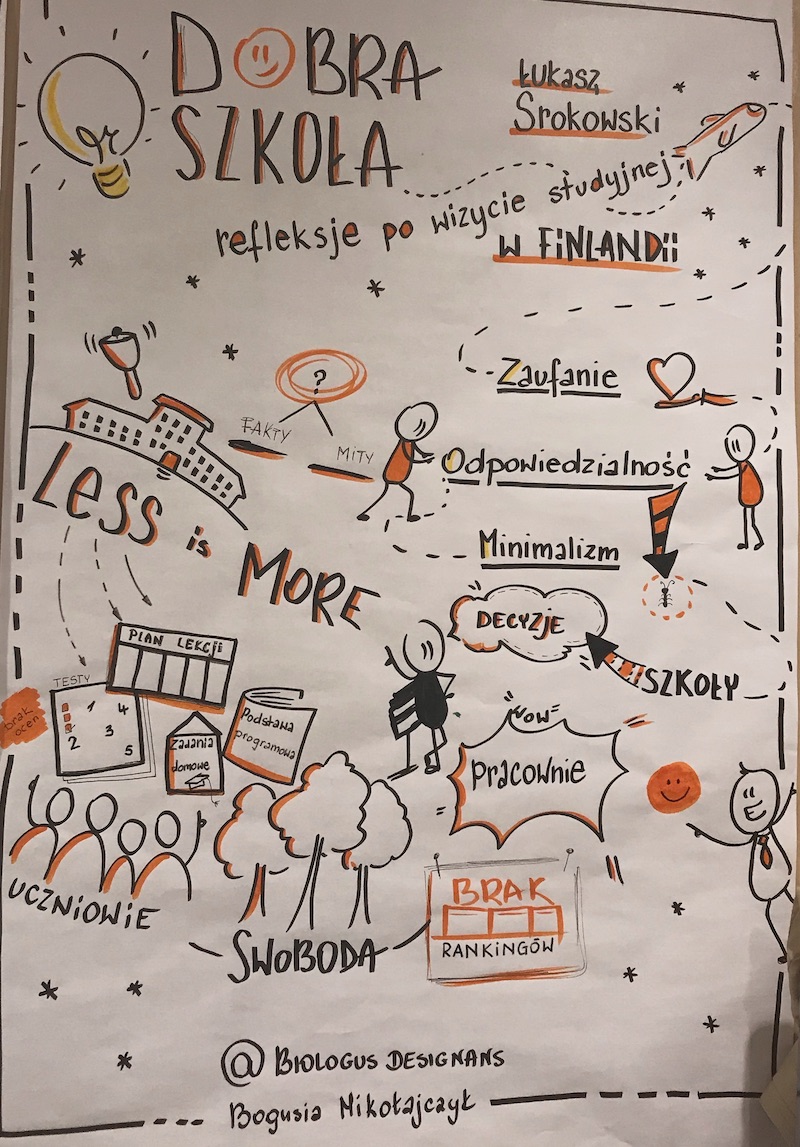 DOBRA
SZKOŁA
Łukasz
Srokowski
refleksje po wizycie studyjnej
w FiNLANDii
?
FAKTY
MITY
Zaufanie
Odpowiedzialność
Minimalizm
LESS is MORE
DECYZJE
SZKOŁY
PLAN LEKCJi
TESTY
1 4
3
2 5
brak
ocen
Zadania
domowe
Podstawa
programowa
WOW
Pracownie
UCZNiOWiE
SWOBODA
BRAK
RANKiNGÓW
@ BIOLOGUS DESIGNANS
Bogusia Mikołajczyk